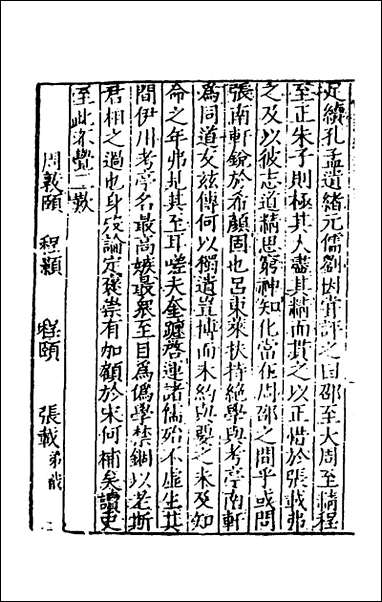 足續孔孟遺緒元儒劉因嘗評之曰邵至大周至精程
至正朱子則極其大盡其精而貫之以正惜於張載弗
之及以彼志道精思窮神知化當在周邵之間乎或問
張南軒銳於希顏固也呂東萊扶持絶學與考亭南軒
為同道友茲傳何以獨遺豈博而未約與要之未及知
命之年弗克其至耳嗟夫奎躔啓運諸儒殆不虛生其
間伊川考亭名最高嫉最衆至目為偽學禁錮以老斯
君相之過也身後論定褒崇有加顧於宋何補矣讀史
至此不覺三歎
周敦頤 程顥 程頤 張載弟戩